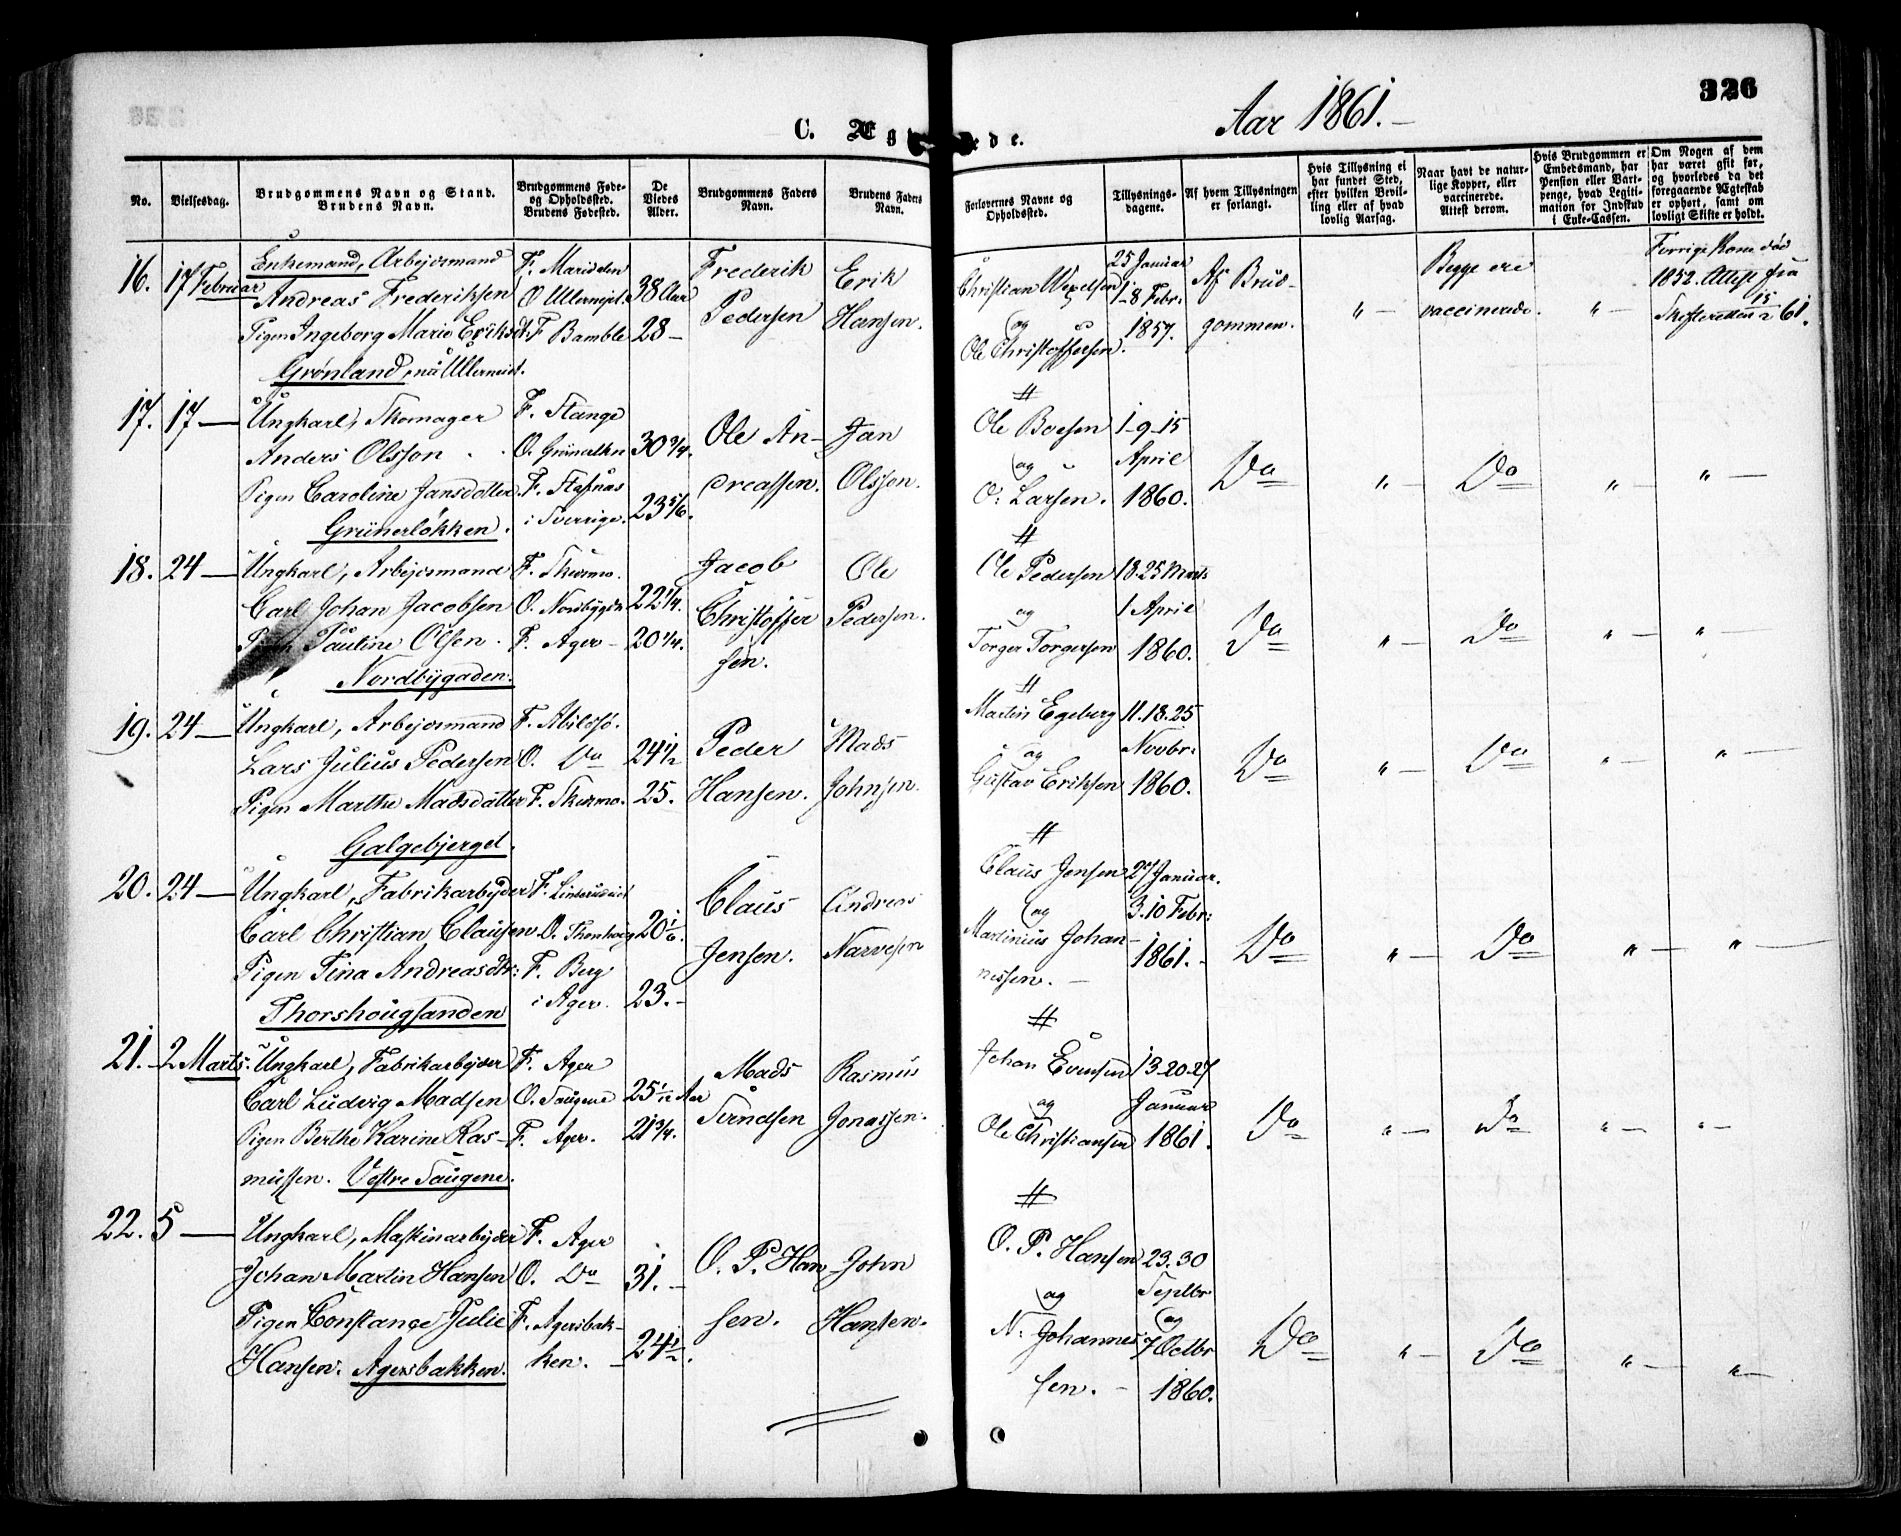 Aar 1861.
326
C. Ægteviede.
No.
Vielsesdag.
Brudgommens Navn og Stand.
Brudens Navn.
Brudgommens Føde-
og Opholdssted.
Brudens Fødested.
De
Viedes
Alder.
Brudgommens Faders
Navn.
Brudens Faders
Navn.
Forlovernes Navne og
Opholdssted.
Tillysnings-
dagene.
Af hvem Tillysningen
er forlangt.
Hvis Tillysning ei
har fundet Sted,
efter hvilken Bevil-
ling eller af hvad
lovlig Aarsag.
Naar havt de natur-
lige Kopper, eller
vaccinerede.
Attest derom.
Hvis Brudgommen er
Embedsmand, har
Pension eller Vart-
penge, hvad Legiti-
mation for Indskud
i Enke-Cassen.
Om Nogen af dem
har været gift før,
og hvorledes da det
foregaaende Ægteskab
er ophørt, samt om
lovligt Skifte er holdt.
16. 17 Februar
Enkemand, Arbejdsmand
Andreas Frederiksen
Pigen Ingeborg Marie Eriksdt.
Grønland, nu Ullernejet.
F. Maridalen
O Ullernejet
F Bamble
38 Aar
28 —
Frederik
Pedersen
Erik
Hansen.
Christian Wexelsen
og
Ole Christoffersen.
25 Januar
1-8 Febr:
1857.
Af Brud-
gommen.
" —
Begge ere
vaccinerede.
" —
Forrige Kone død
1852. Attest fra
Skifteretten 15/2 61.
17. 17 —
Ungkarl, Skomager
Anders Olsson
Pigen Caroline Jansdotter
Grünerløkken.
F. Stange
O. Grünerløkn
F. Stafnäs
i Sverrige.
30 3/4.
23 5/6.
Ole An-
dreassen.
Jan
Olsson.
#
Ole Boesen
og
O: Larsen.
1-9-15
April
1860.
Do
" —
Do
" —
" —
18. 24 —
Ungkarl, Arbejdsmand
Carl Johan Jacobsen
Pauline Olsen.
Nordbygaden.
F. Skurmo.
O. Nordbygdn
F. Ager —
22 1/4.
20 1/4.
Jacob
Christoffer
sen.
Ole
Pedersen.
#
Ole Pedersen
og
Torger Torgersen
18-25 Marts
1 April
1860.
Do
" —
Do
" —
" —
19. 24 —
Ungkarl, Arbejdsmand
Lars Julius Pedersen
Pigen Marthe Madsdatter
Galgebjerget.
F. Abildsø.
O. Do
F. Skurmo.
24 1/2
25.
Peder
Hansen.
Mads
Johnsen.
#
Martin Egeberg
og
Gustav Eriksen
11.18.25
Novbr:
1860.
Do
" —
Do
" —
" —
20. 24 —
Ungkarl, Fabrikarbejder
Carl Christian Claussen
Pigen Tina Andreasdtr:
Thorshougsanden
F. Linderudeiet
O. Thorshoug
F. Berg
i Ager.
20 1/6.
23. —
Claus
Jensen.
Andreas
Narvesen
#
Claus Jensen
og
Martinius Johan-
nessen. —
27 Januar.
3.10 Febr:
1861. —
Do
" —
Do
" —
" —
21. 2 Marts.
Ungkarl, Fabrikarbejder
Carl Ludvig Madsen
Pigen Berthe Karine Ras-
mussen. Vestre Saugene.
F. Ager
O. Saugene
F. Ager.
25 1/12 Aar
21 3/4.
Mads
Svendsen
Rasmus
Jonassen.
#
Johan Evensen
og
Ole Christiansen
13-20-27
Januar
1861.
Do
" —
Do
" —
" —
22. 5 —
Ungkarl, Maskinarbejder
Johan Martin Hansen
Pigen Constance Julie
Hansen. Agersbakken.
F. Ager
O. Do
F. Agersbak-
ken. —
31. —
24 1/2.
O. P. Han
sen.
John
Hansen.
#
O. P. Hansen
og
N. Johannes
sen. —
23.30
Septbr
og
7 Octbr
1860.
Do
" —
Do
" —
" —